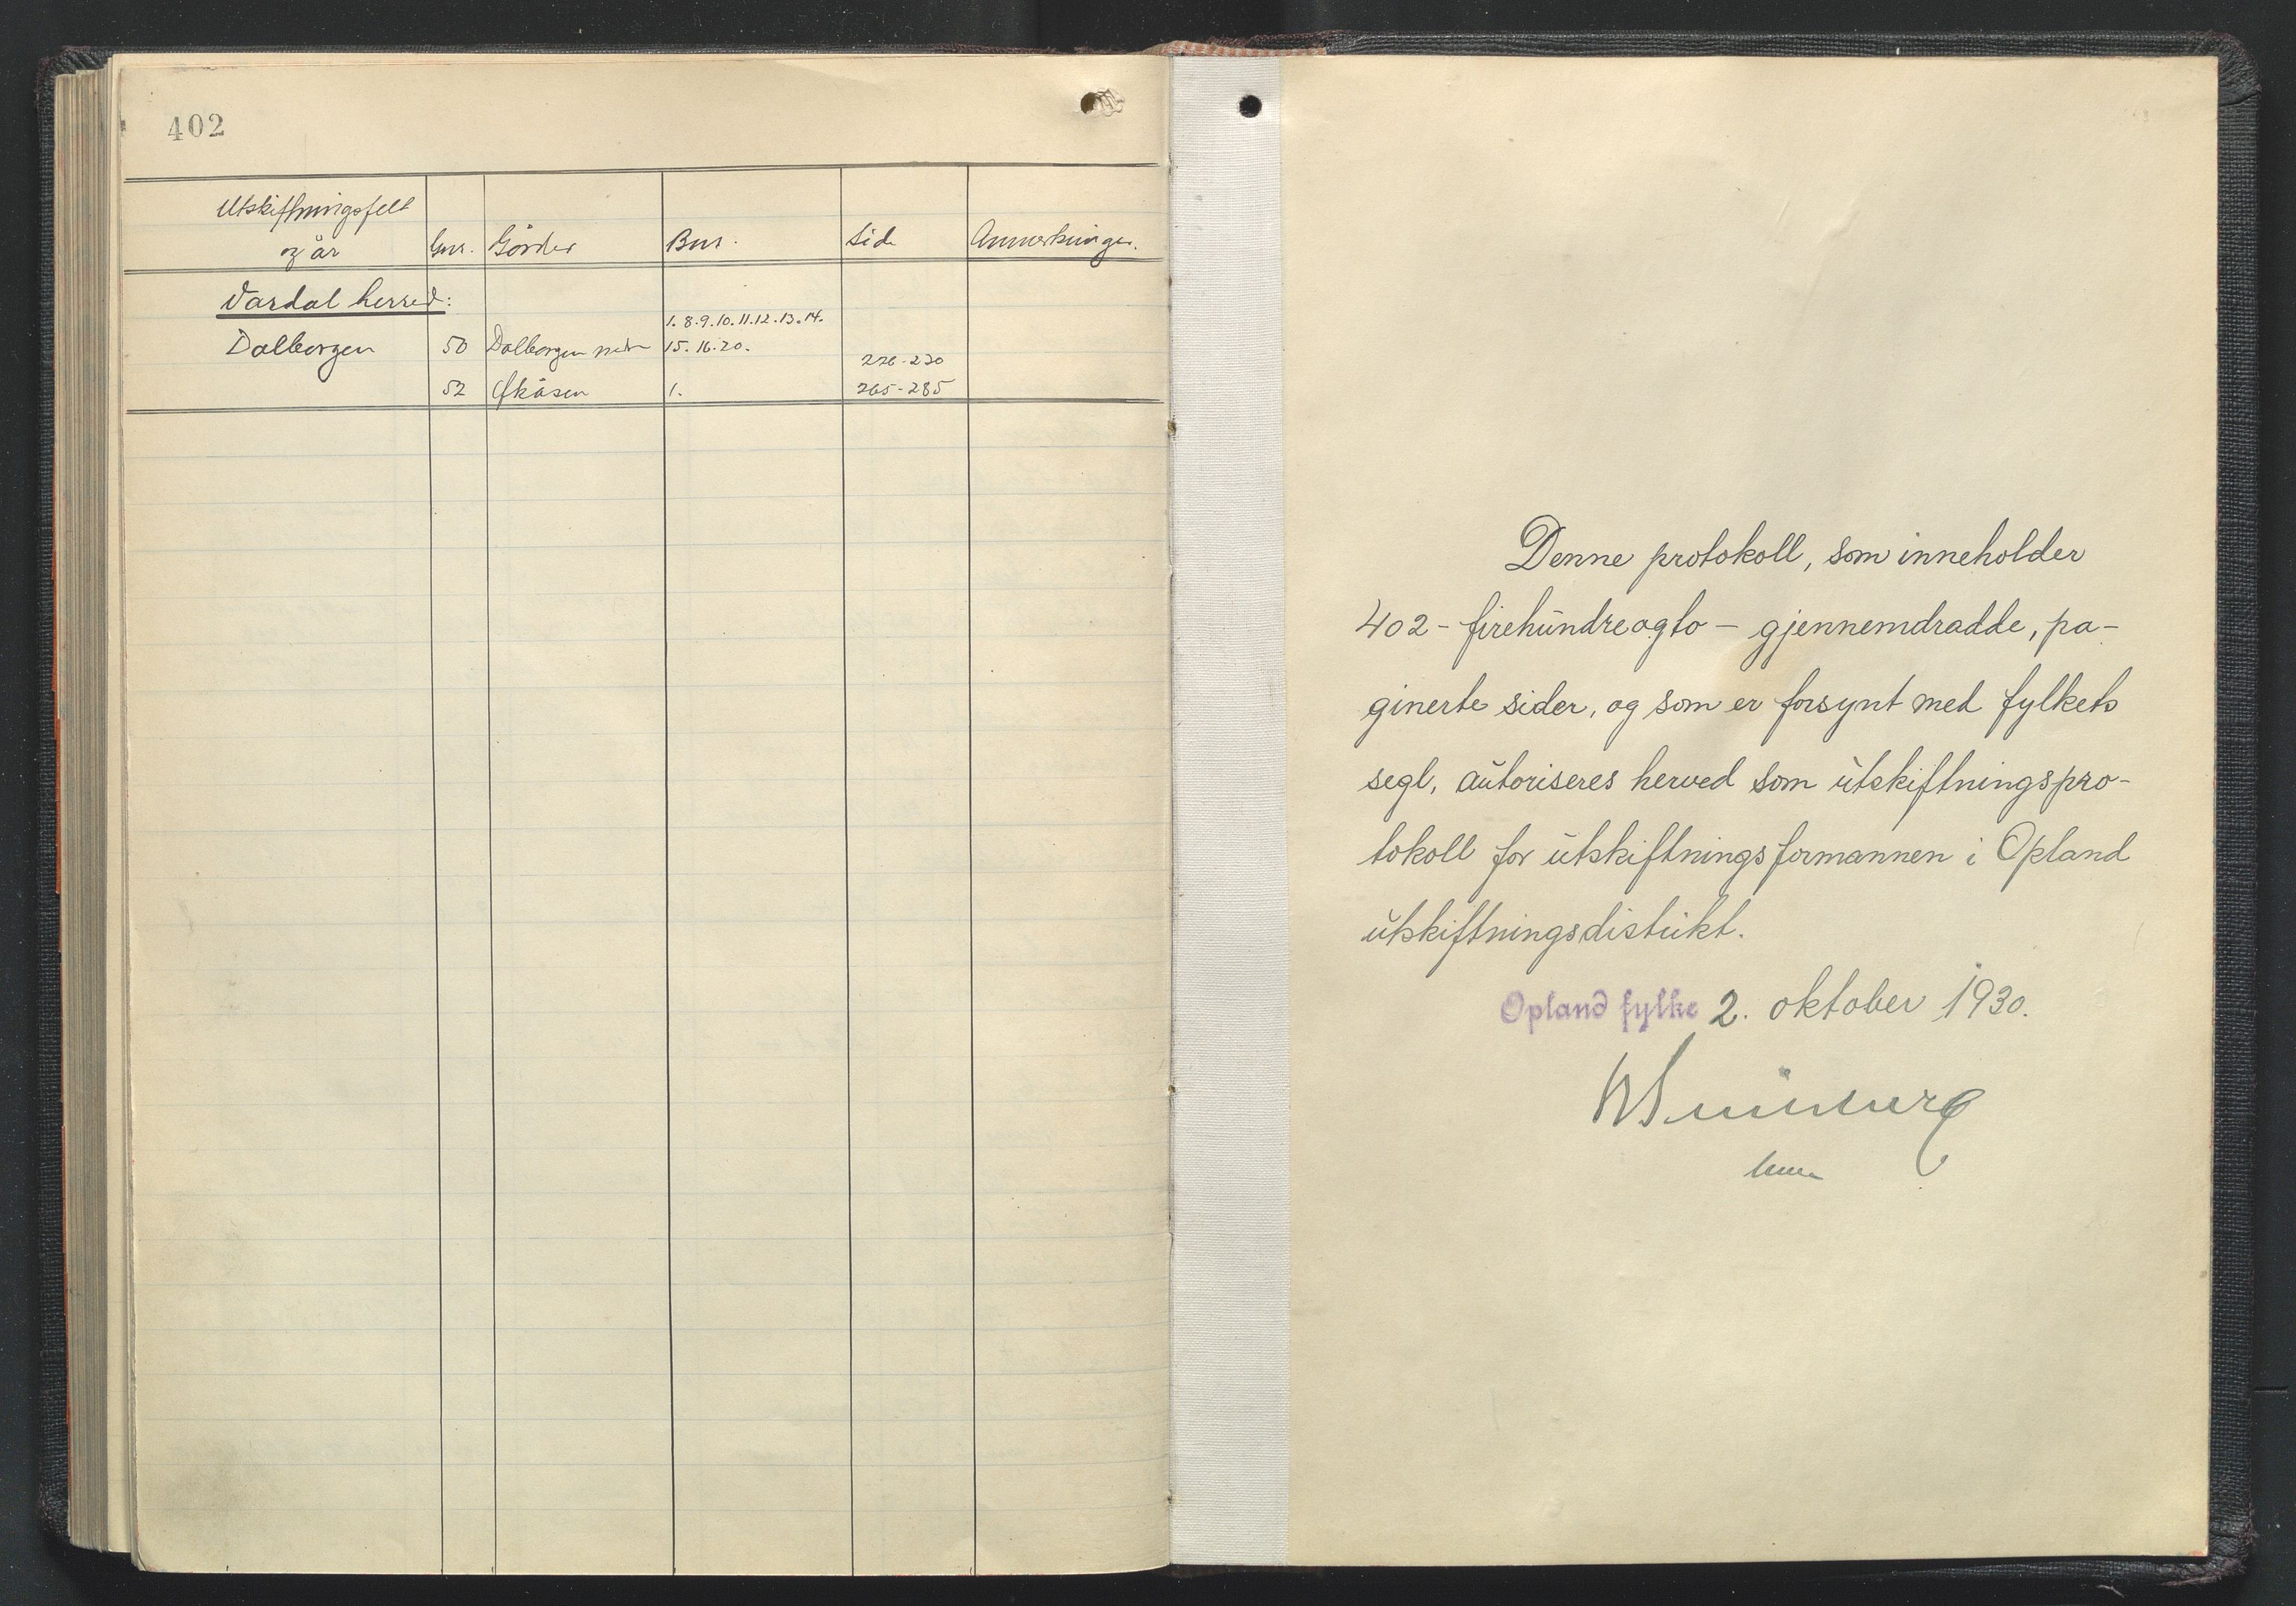 402
Utskiftningsfelt
og år Gnr. Gårder Bnr. Side Anmerkninger.
Vardal herred:
1. 8. 9. 10. 11. 12. 13. 14.
Dalborgen 50 Dalborgen nedre 15. 16. 20.
226-230
52 Åsen 1. 265-285
Denne protokoll, som inneholder
402 - firehundreogto - gjennemdradde, pa-
ginerte sider, og som er forsynt med fylkets
segl, autoriseres herved som utskiftningspro-
tokoll for utskiftningsformannen i Opland
utskiftningsdistrikt.
Opland fylke 2. oktober 1930.